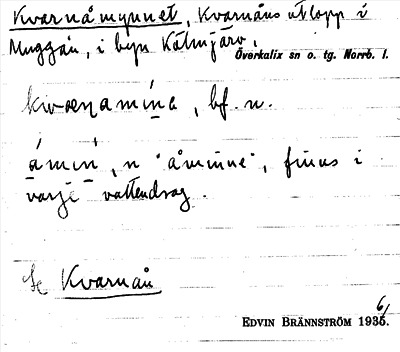 Kvarnåmynnet, Kvarnåns utlopp i
Muggån, i byn Kälmjärv,
Överkalix sn o. tg. Norrb. l.
kwæṇamína, bf. n.
ámin, n "åminne", finns i
varje vattendrag.
Se Kvarnån
EDVIN BRÄNNSTRÖM 1936.